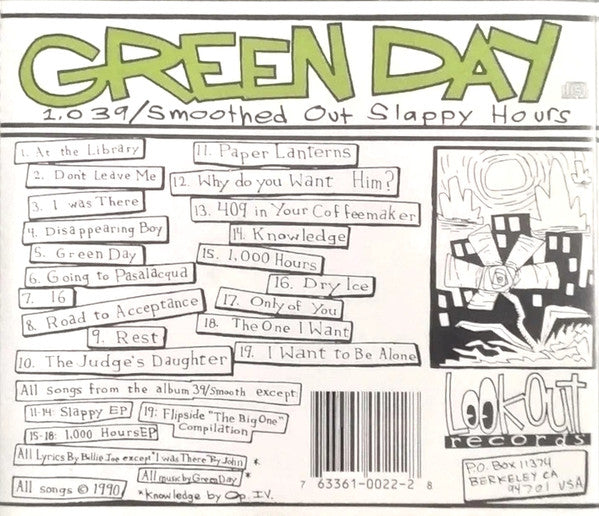 GREEN DAY
1,039/Smoothed Out Slappy Hours
1. At the Library
2. Dont Leave Me
3. I was There
4. Disappearing Boy
5. Green Day
6. Going to Pasalacqua
7. 16
8. Road to Acceptance
9. Rest
10. The Judge's Daughter
11. Paper Lanterns
12. Why do you Want Him?
13. 409 in Your Coffeemaker
14. Knowledge
15. 1,000 Hours
16. Dry Ice
17. Only of You
18. The One I Want
19. I Want to Be Alone
All songs from the album 39/Smooth except:
11-14: Slappy EP
15-18: 1,000 Hours EP
19: Flipside "The Big One"
Compilation
All Lyrics By Billie Joe except "I was There" By John *
All music by Green Day *
*Knowledge by Op. I.V.
All songs © 1990
7 63361-0022-2 8
Lookout
records
P.O. Box 11374
BERKELEY CA
94701 USA